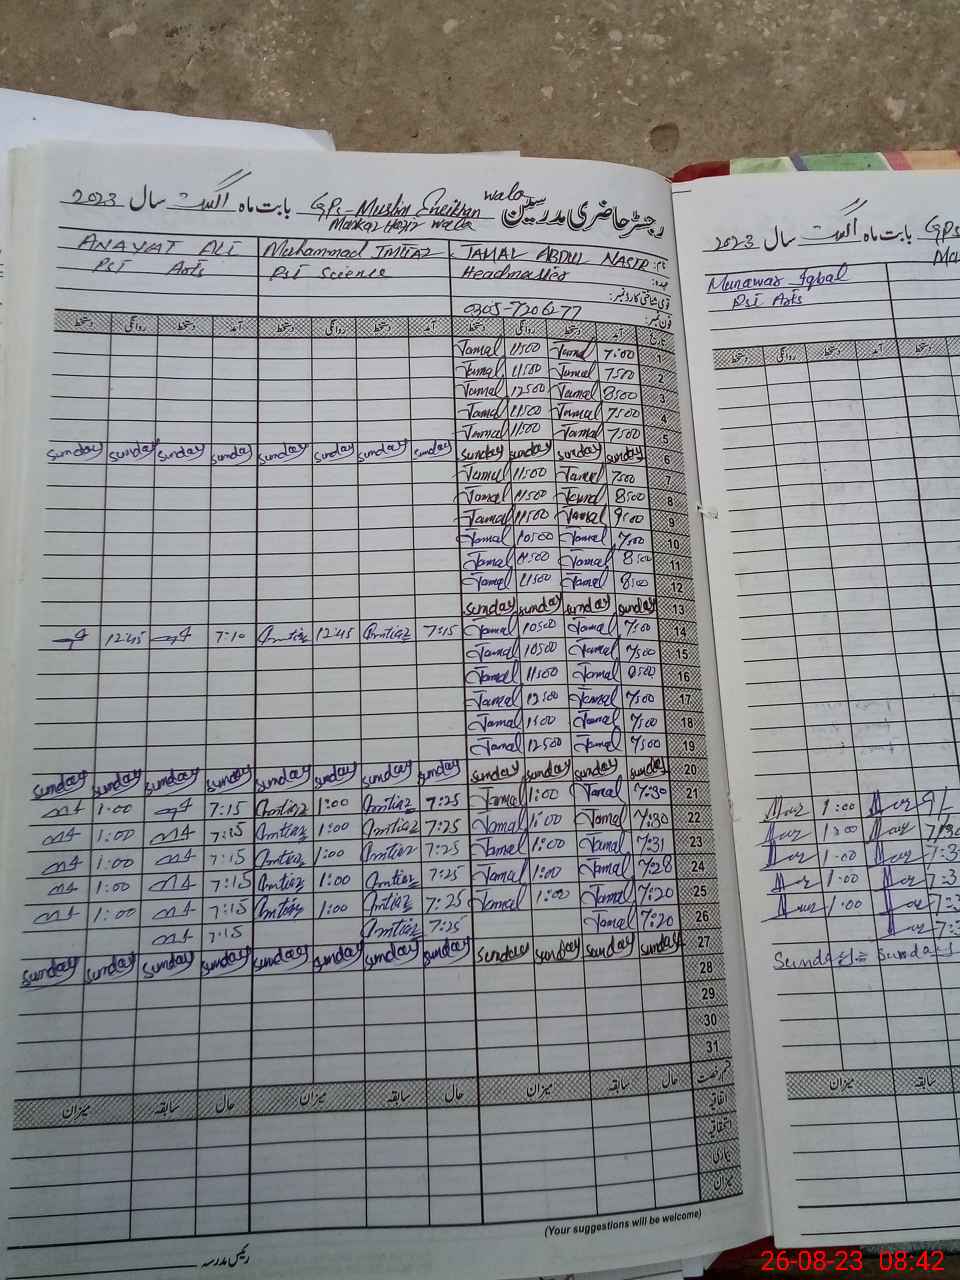 رجسٹر حاضری مدرسین GPS- Muslim Sheikhan wala بابت ماہ اگست سال 2023
Markaz Hajir wala
نام: JAMAL ABDUL NASIR Muhammad IMTIAZ ANAYAT ALI
عہدہ: Headmaster Pst Science Pst Arts
قومی شناختی کارڈ نمبر:
فون نمبر:
تاریخ آمد دستخط روانگی دستخط آمد دستخط روانگی دستخط آمد دستخط روانگی دستخط
1 7:00 Jamal 11:00 Jamal
2 7:00 Jamal 11:00 Jamal
3 8:00 Jamal 12:00 Jamal
4 7:00 Jamal 11:00 Jamal
5 7:00 Jamal 11:00 Jamal
6 Sunday Sunday Sunday Sunday Sunday Sunday Sunday Sunday Sunday Sunday Sunday Sunday
7 7:00 Jamal 11:00 Jamal
8 8:00 Jamal 11:00 Jamal
9 9:00 Jamal 11:00 Jamal
10 7:00 Jamal 10:00 Jamal
11 8:00 Jamal 11:00 Jamal
12 8:00 Jamal 11:00 Jamal
13 Sunday Sunday Sunday Sunday
14 7:00 Jamal 10:00 Jamal 7:15 Imtiaz 12:45 Imtiaz 7:10 12:45
15 7:00 Jamal 10:00 Jamal
16 Jamal 11:00 Jamal
17 7:00 Jamal 12:00 Jamal
18 7:00 Jamal Jamal
19 7:00 Jamal 12:00 Jamal
20 Sunday Sunday Sunday Sunday Sunday Sunday Sunday Sunday Sunday Sunday Sunday Sunday
21 7:30 Jamal 1:00 Jamal 7:25 Imtiaz 1:00 Imtiaz 7:15 1:00
22 7:30 Jamal 1:00 Jamal 7:25 Imtiaz 1:00 Imtiaz 7:15 1:00
23 7:31 Jamal 1:00 Jamal 7:25 Imtiaz 1:00 Imtiaz 7:15 1:00
24 7:28 Jamal 1:00 Jamal 7:25 Imtiaz 1:00 Imtiaz 7:15 1:00
25 7:20 Jamal 1:00 Jamal 7:25 Imtiaz 1:00 Imtiaz 7:15 1:00
26 7:20 Jamal 7:25 Imtiaz 7:15
27 Sunday Sunday Sunday Sunday Sunday Sunday Sunday Sunday Sunday Sunday Sunday Sunday
28
29
30
31
قسم رخصت حال سابقہ میزان حال سابقہ میزان حال سابقہ میزان
اتفاقیہ
استحقاقیہ
بیماری
میزان
(Your suggestions will be welcome)
رئیس مدرسہ
GPS بابت ماہ اگست سال 2023
Ma
Munawar Iqbal
Pst Arts
دستخط آمد دستخط روانگی دستخط
1:00
7:30 1:00
7:3 1:00
7:3 1:00
7:3 1:00
7:3
Sunday Sunday
سابقہ میزان
26-08-23 08:42